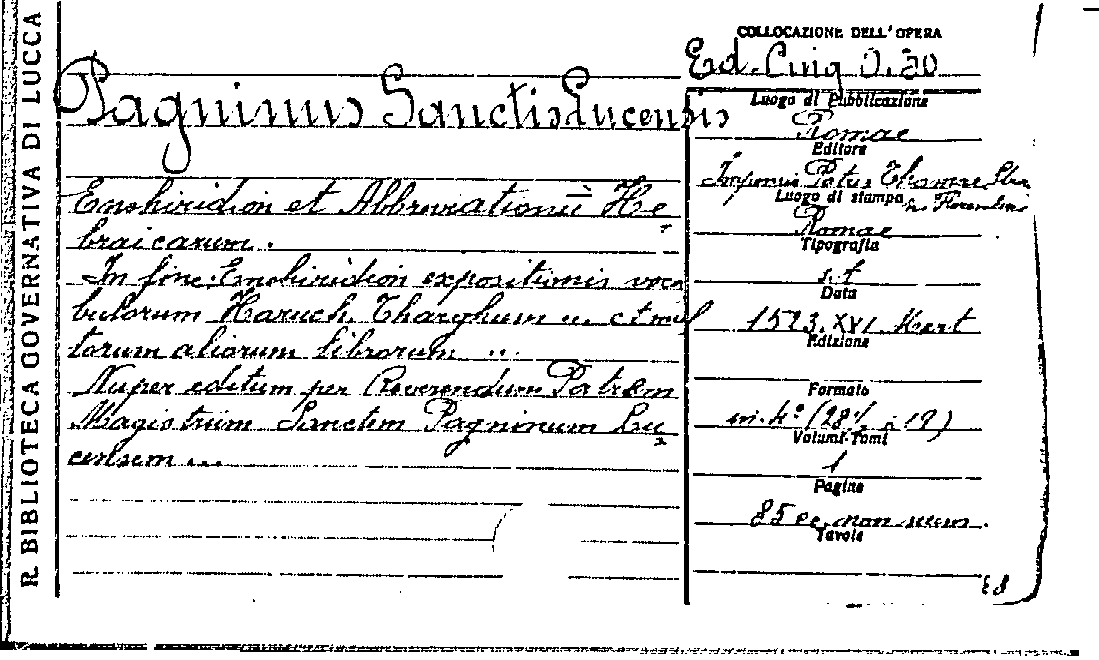 R. BIBLIOTECA GOVERNATIVA DI LUCCA
COLLOCAZIONE DELL'OPERA
Ed. Cinq 0.20
Pagninus Sanctis Lucensis
Luogo di Pubblicazione
Romae
Editore
Thomae
Luogo di stampa
Romae
Tipografia
s.t
Data
1523. XVI Mart
Edizione
Formato
in. 4°
Volumi-Tomi
1
Pagine
85 cc. non num.
Tavole
Enchiridion et Abbreviationū He
braicarum.
In fine: Enchiridion expositionis voca
bulorum Haruch, Tharghum ... et mul
torum aliorum librorum ...
Nuper editum per Reverendum Patrem
Magistrum Sanctem Pagninum Lu
censem ...